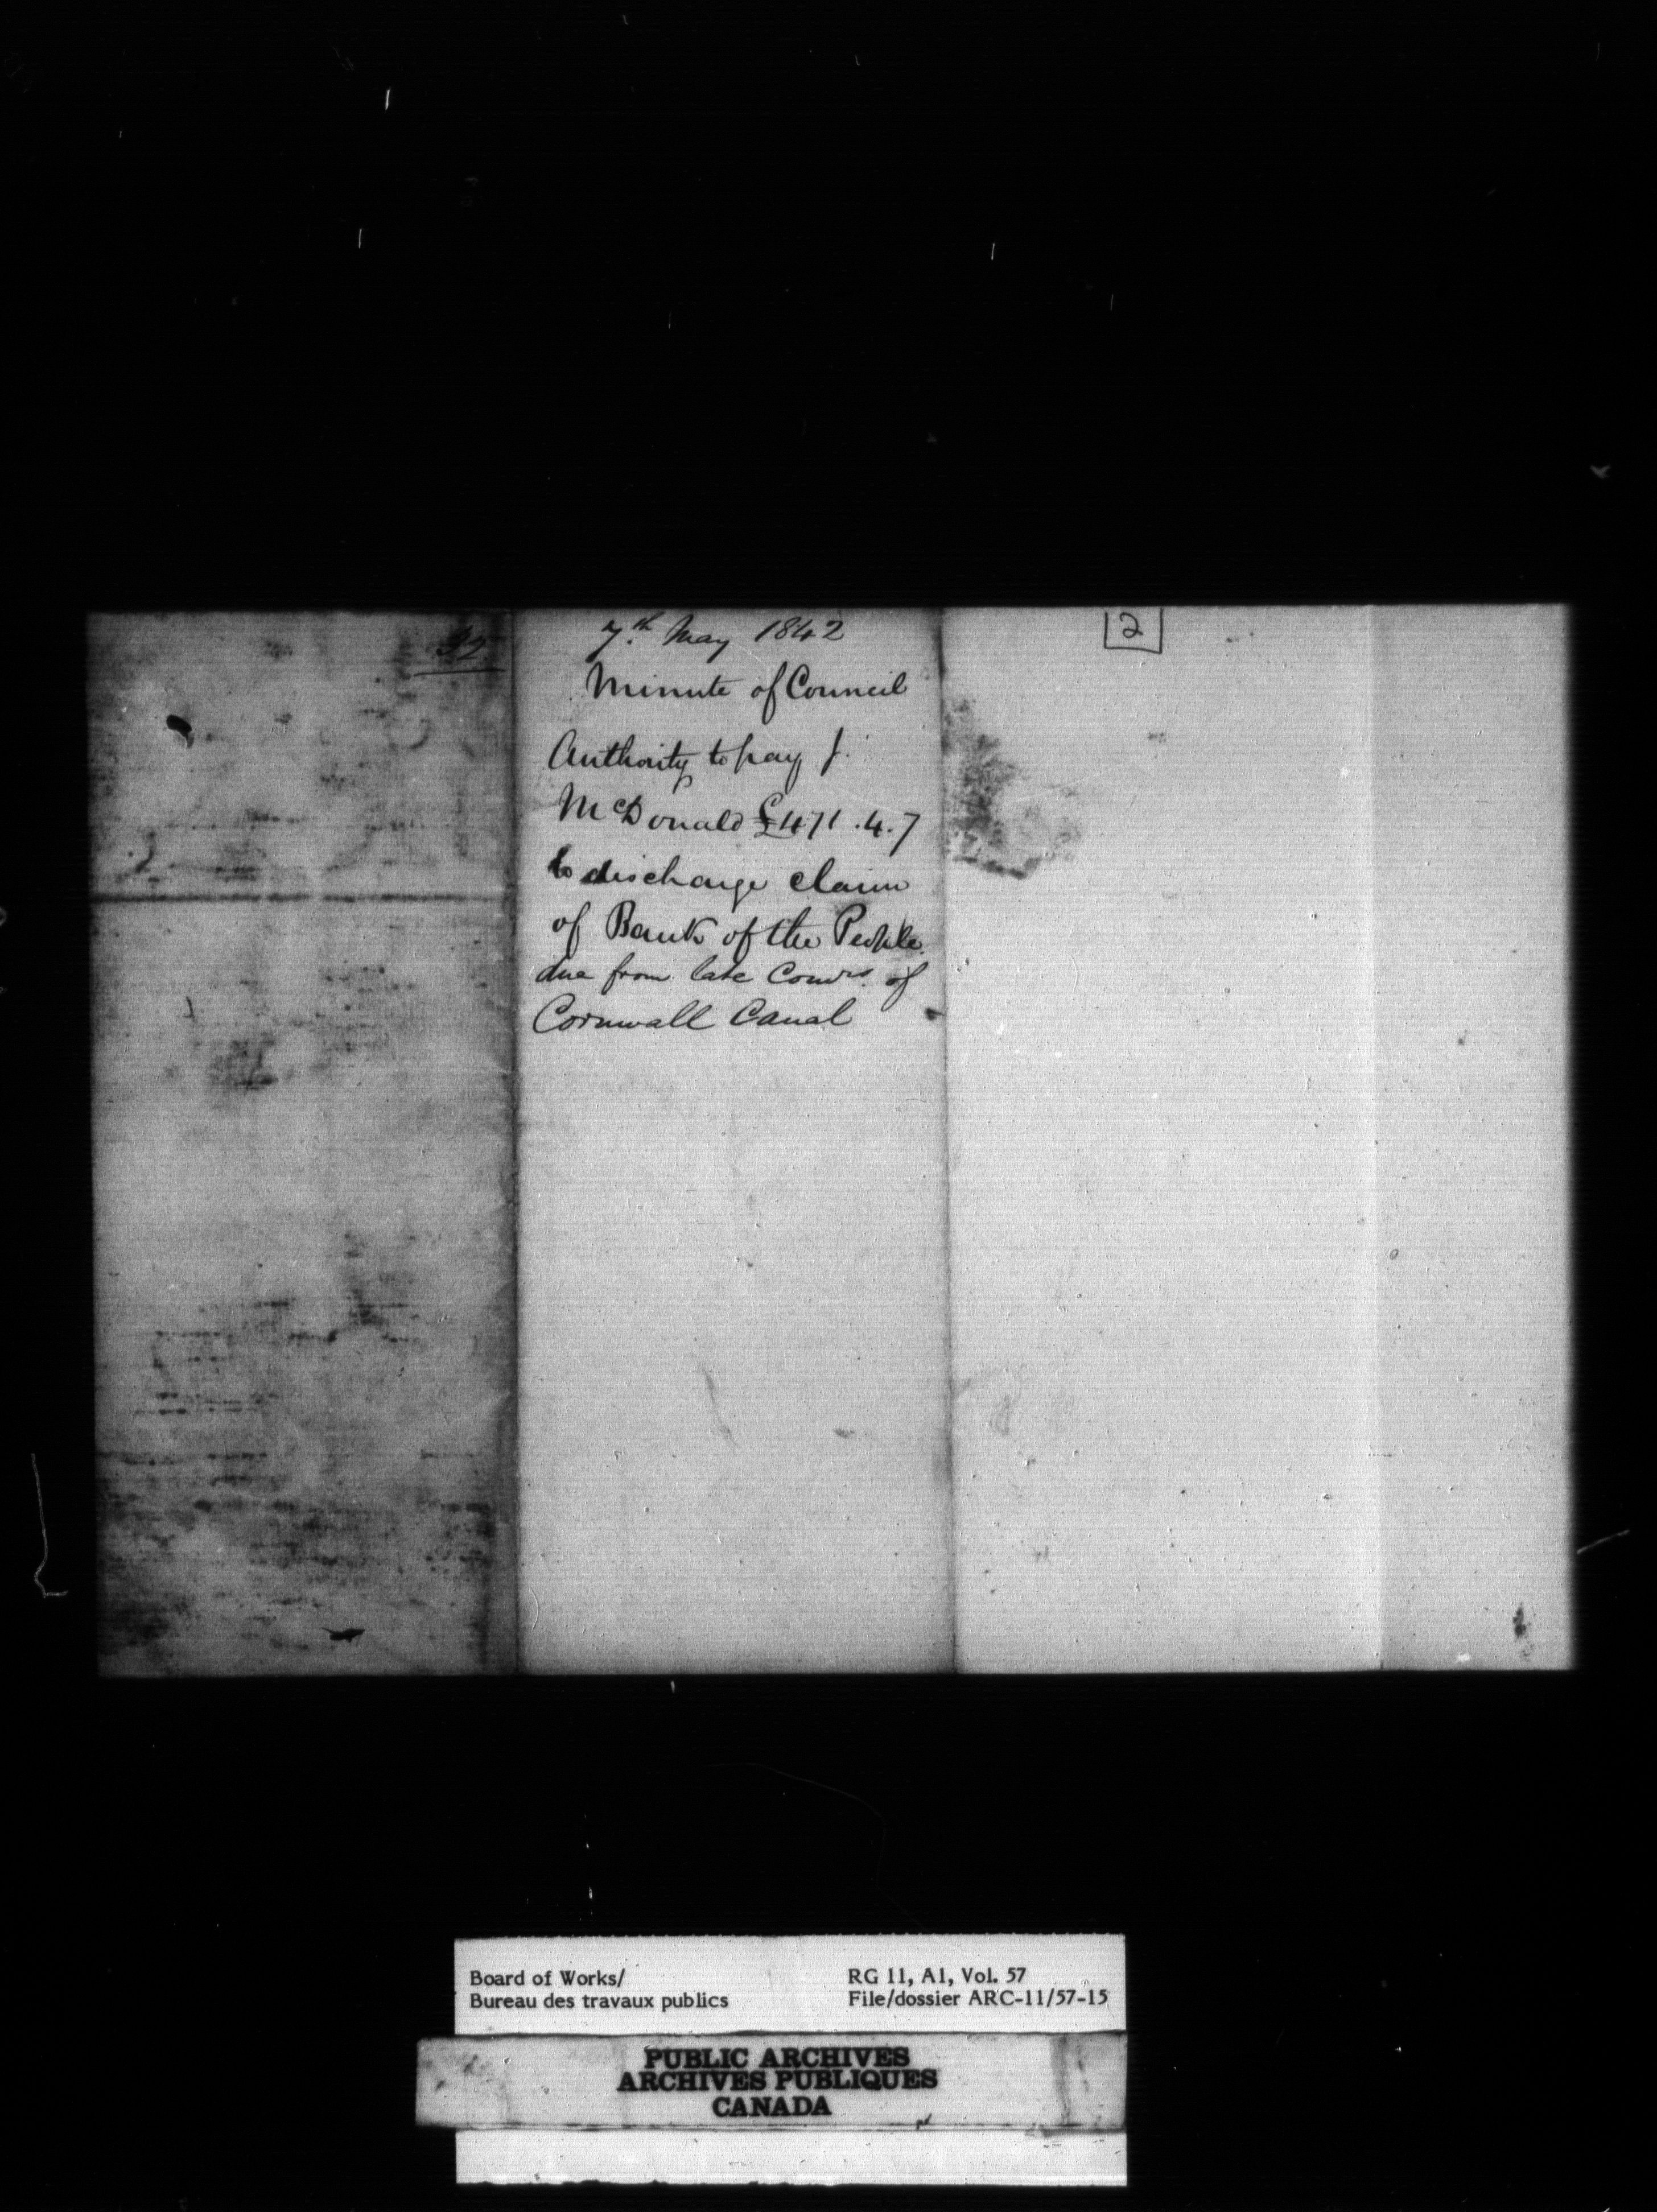 92
7th May 1842
Minute of Council
Authority to pay J.
McDonald £471.4.7
to discharge claim
of Bank of the People
due from late Comrs. of
Cornwall Canal
2
Board of Works/
Bureau des travaux publics
RG 11, A1, Vol. 57
File/dossier ARC-11/57-15
PUBLIC ARCHIVES
ARCHIVES PUBLIQUES
CANADA